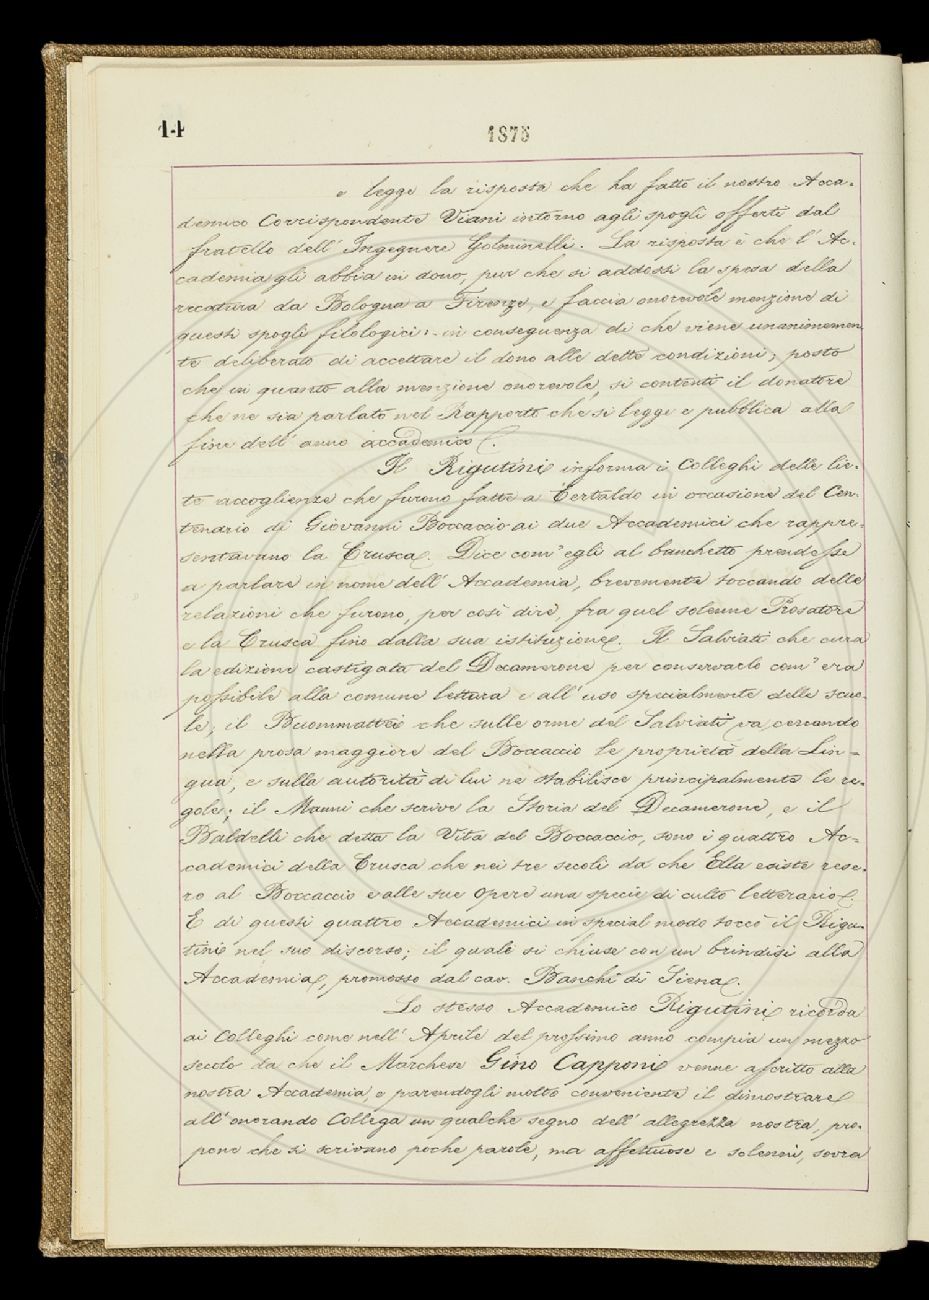 14
1875
e legge la risposta che ha fatto il nostro Acca-
demico Corrispondente Viani intorno agli spogli offerti dal
fratello dell' Ingegnere Golminelli. La risposta è che l' Ac-
cademia gli abbia in dono, pur che si addossi la spesa della
recatura da Bologna a Firenze, e faccia onorevole menzione di
questi spogli filologici: in conseguenza di che viene unanimemen-
te deliberato di accettare il dono alle dette condizioni, posto
che in quanto alla menzione onorevole, si contenti il donatore
che ne sia parlato nel Rapporto che si legge e pubblica alla
fine dell' anno accademico.
Il Rigutini informa i Colleghi delle lie-
te accoglienze che furono fatte a Certaldo in occasione del Cen-
tenario di Giovanni Boccaccio ai due Accademici che rappre-
sentavano la Crusca. Dice com' egli al banchetto prendesse
a parlare in nome dell' Accademia, brevemente toccando delle
relazioni che furono, per così dire, fra quel solenne Prosatore
e la Crusca fino dalla sua istituzione. Il Salviati che cura
la edizione castigata del Decamerone per conservarlo com' era
possibile alla comune lettura e all' uso specialmente delle scuo-
le; il Buommattei che sulle orme del Salviati va cercando
nella prosa maggiore del Boccaccio le proprietà della Lin-
gua, e sulla autorità di lui ne stabilisce principalmente le re-
gole; il Manni che scrive la Storia del Decamerone, e il
Baldelli che detta la Vita del Boccaccio, sono i quattro Ac-
cademici della Crusca che nei tre secoli da che Ella esiste rese-
ro al Boccaccio e alle sue Opere una specie di culto letterario.
E di questi quattro Accademici in special modo toccò il Rigu-
tini nel suo discorso; il quale si chiuse con un brindisi alla
Accademia, promosso dal cav. Banchi di Siena.
Lo stesso Accademico Rigutini ricorda
ai Colleghi come nell' Aprile del prossimo anno compia un mezzo
secolo da che il Marchese Gino Capponi venne ascritto alla
nostra Accademia, e parendogli molto conveniente il dimostrare
all' onorando Collega un qualche segno dell' allegrezza nostra, pro-
pone che si scrivano poche parole, ma affettuose e solenni, sovra